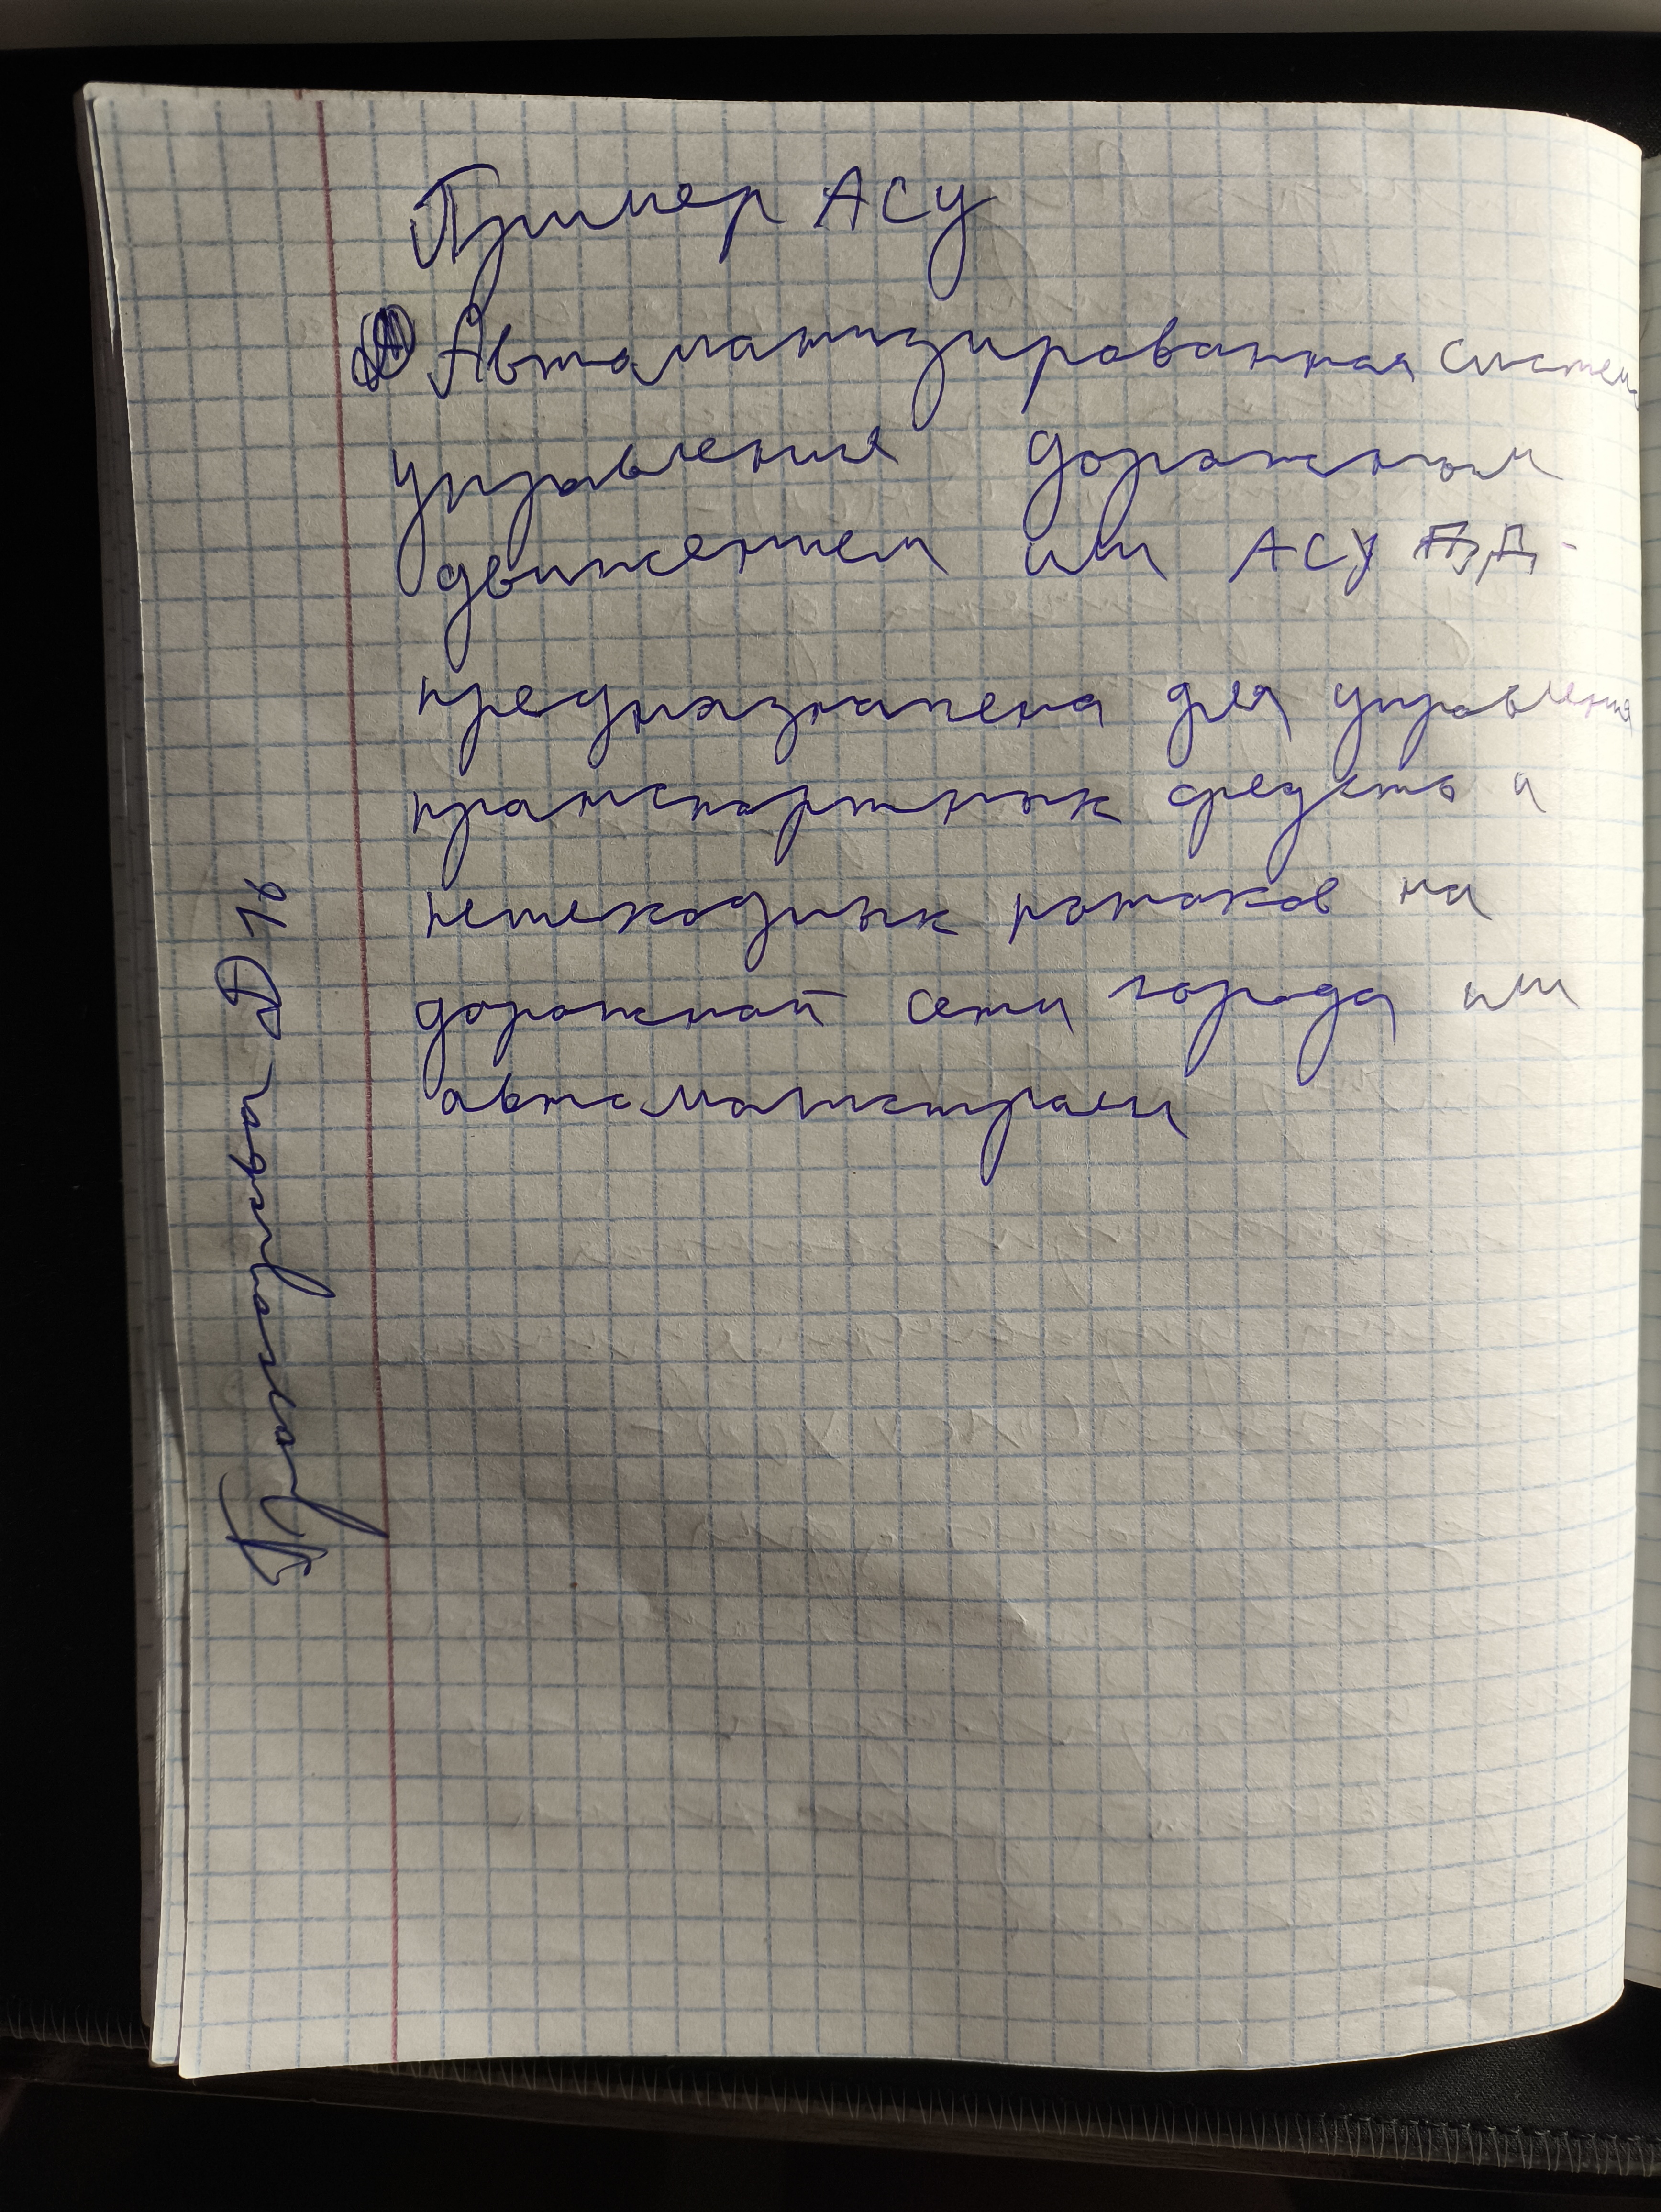 Пример АСУ
Автоматизированная система
управления дорожным
движением или АСУ ДД -
предназначена для управления
транспортных средств и
пешеходных потоков на
дорожной сети города или
автомагистрали